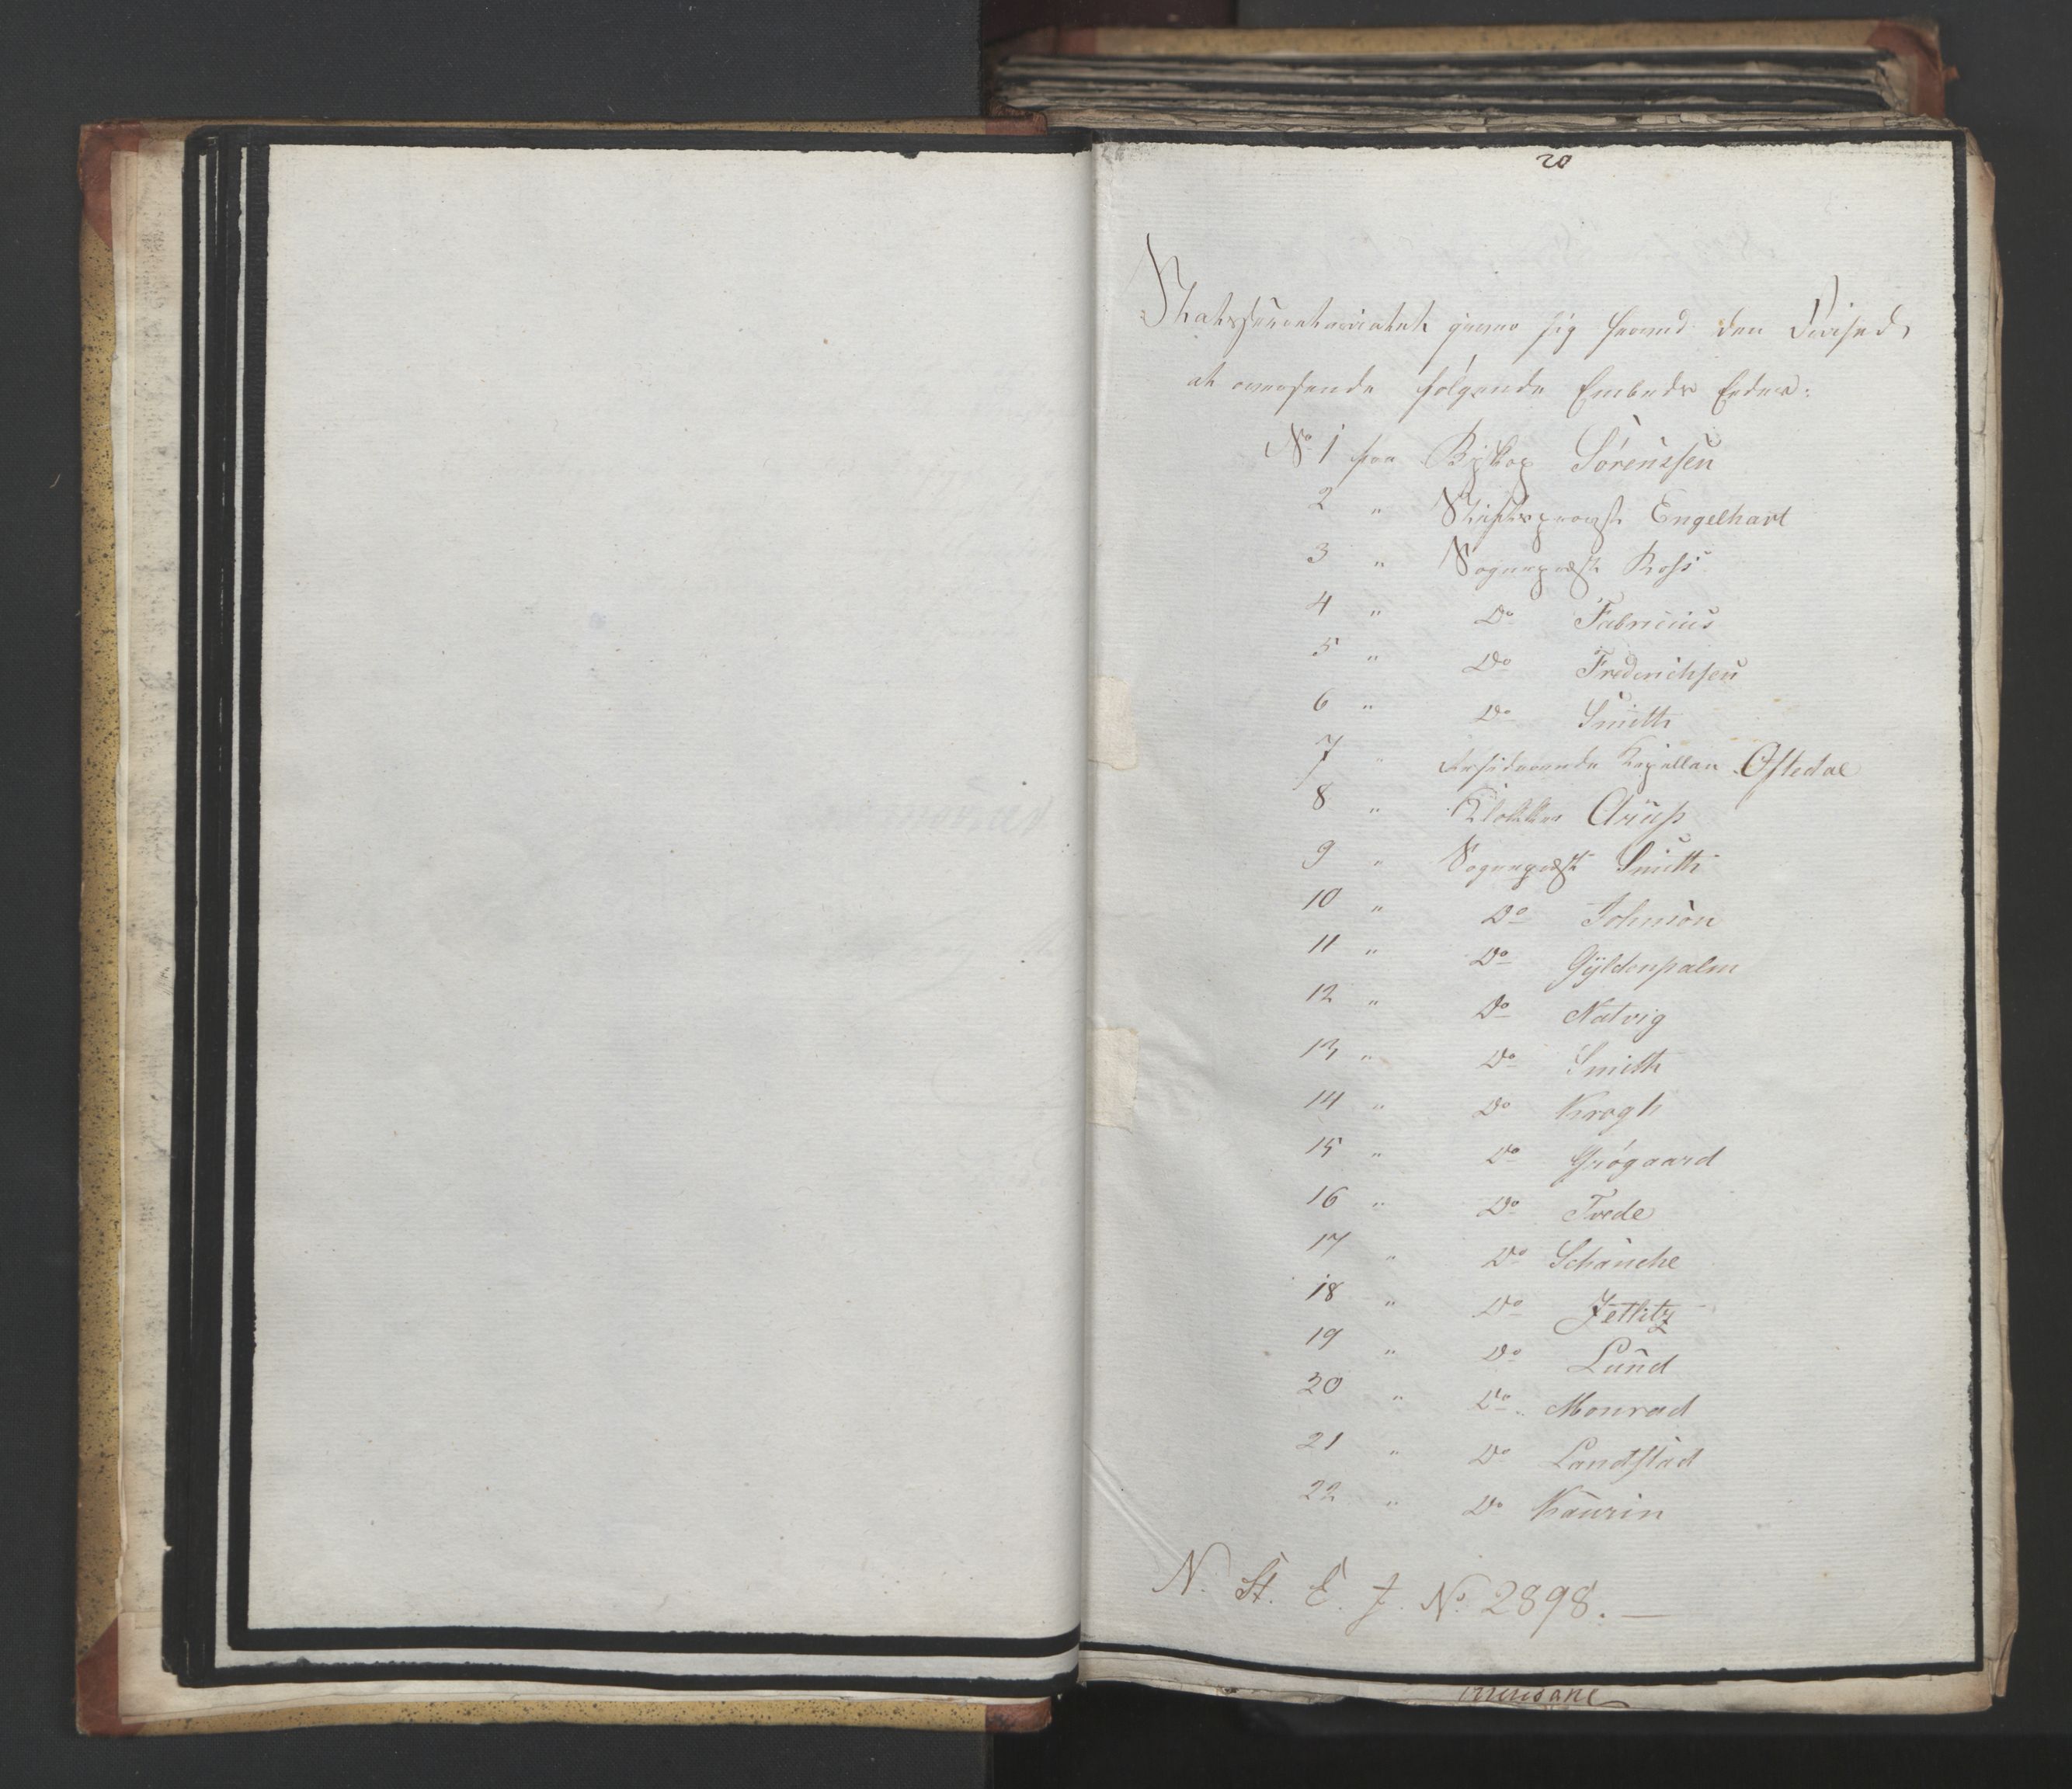 20
Statssecretariatet giver sig herved den Frihed,
at oversende følgende Embeds Eeder:
No 1 fra Biskop Sørenssen
2 " Stiftsprovst Engelhart
3 " Sognepræst Ross
4 " Do Fabricius
5 " Do Frederichsen
6 " Do Smith
7 " residerende Kapellan Oftedal
8 " Klokker Arup
9 " Sognepræst Smith
10 " Do Johnson
11 " Do Gyldenpalm
12 " Do Natvig
13 " Do Smith
14 " Do Krogh
15 " Do Grøgaard
16 " Do Tvede
17 " Do Schanche
18 " Do Jetlitz
19 " Do Lund
20 " Do Monrad
21 " Do Landstad
22 " Do Kaurin
N. St. E. J. No 2898. —